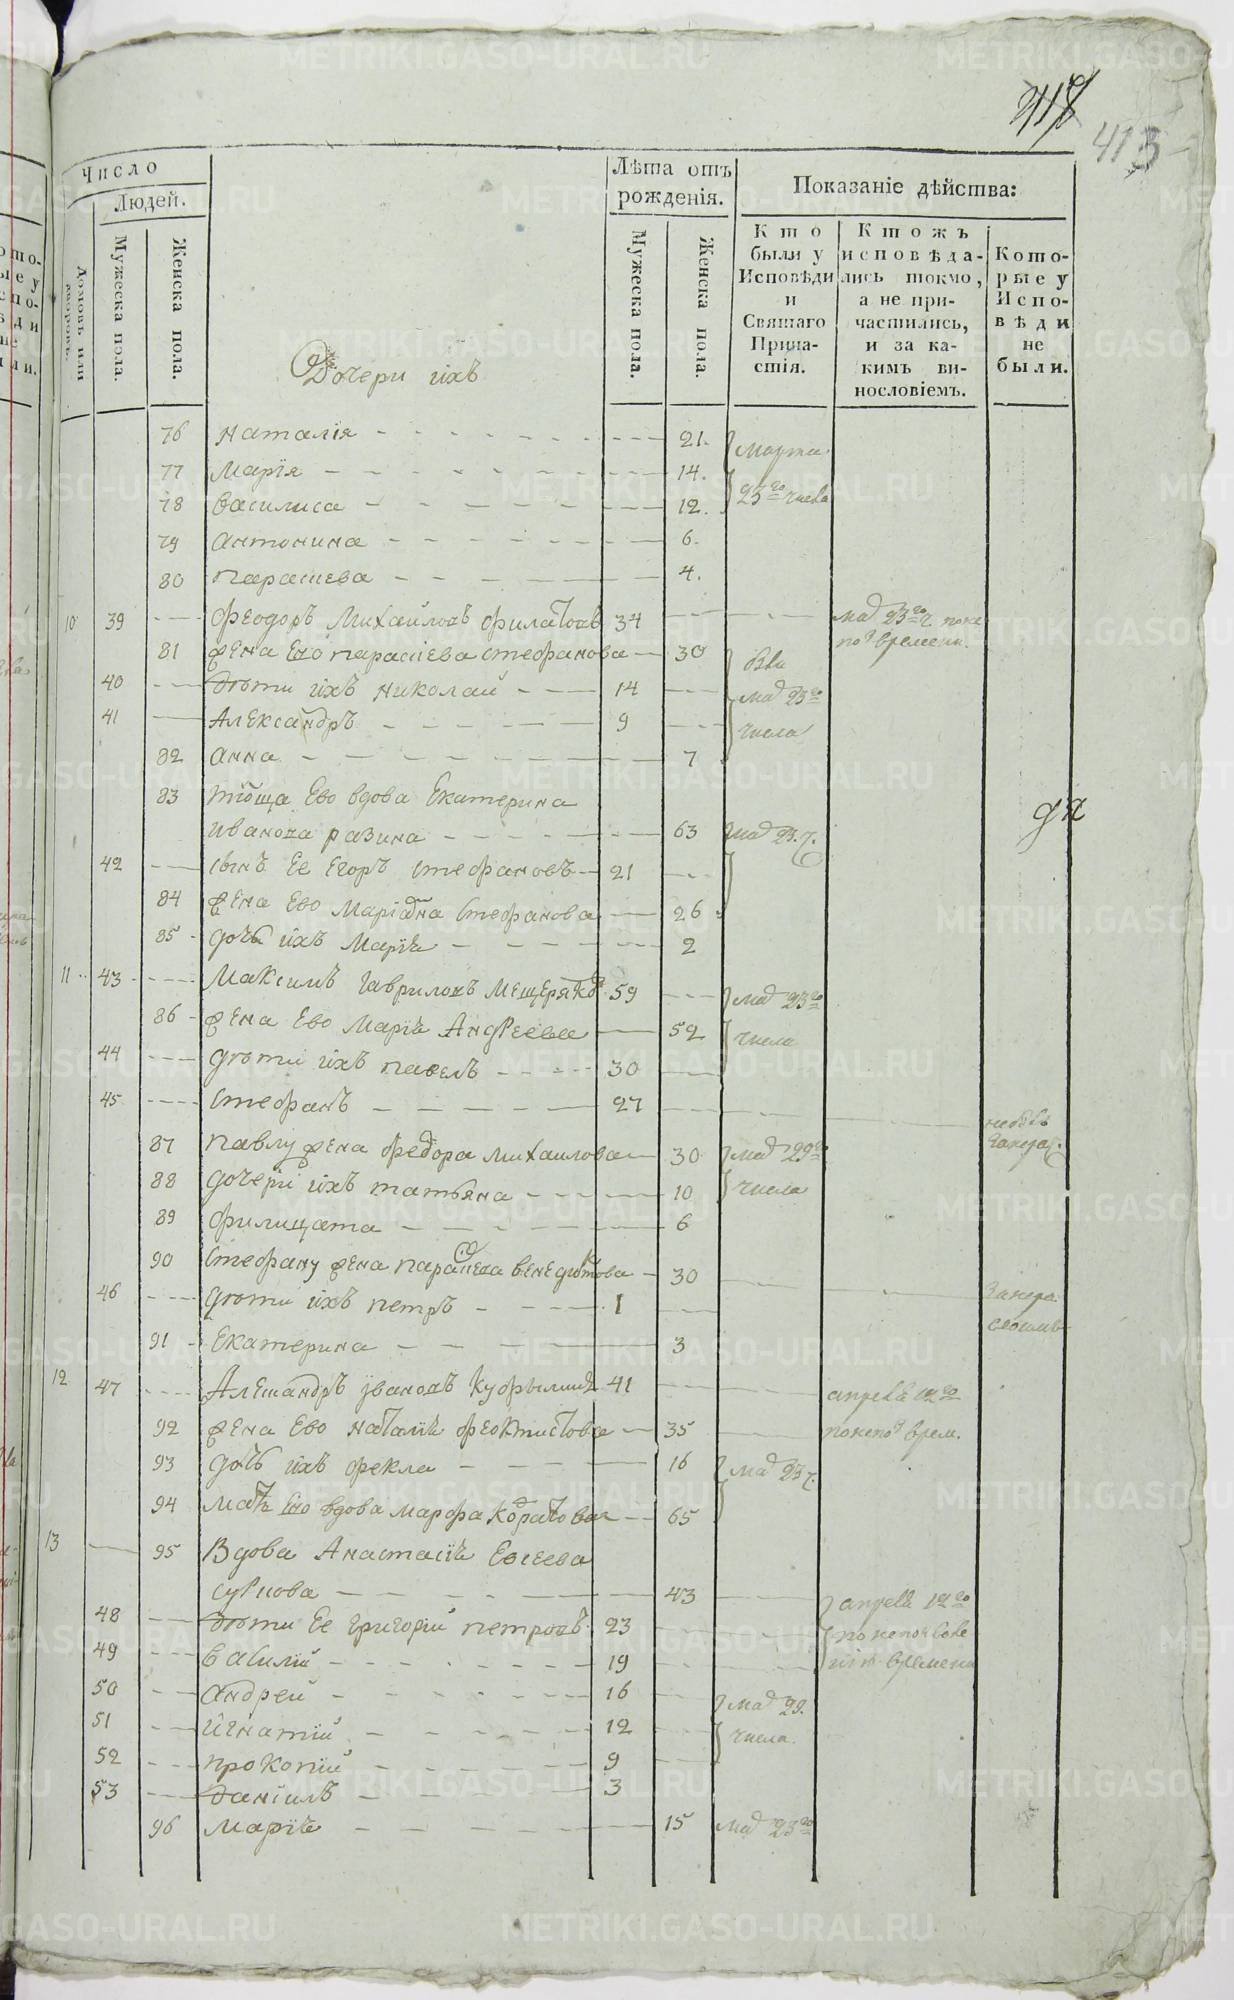 413
Число
Людей.
Домовъ или дворовъ.
Мужеска пола.
Женска пола.
Лѣта отъ рожденія.
Мужеска пола.
Женска пола.
Показаніе дѣйства:
Кто были у Исповѣди и Святаго Причастія.
Ктожъ исповѣдались токмо, а не причастились, и за какимъ винословіемъ.
Которые у Исповѣди не были.
Дочери ихъ
76 Наталія 21. Марта
77 Марїя 14.
78 Василиса 12. 23го числа
79 Антонина 6.
80 Парасцева 4.
10 39 Феодоръ Михайловъ Филатовъ 34 мар 23го
81 Жена Ево Парасцева Стефанова 30 времени.
40 Дѣти ихъ Николай 14 мар 23го
41 Александръ 9 числа
82 Анна 7
83 тѣоща Ево вдова Екатерина
Иванова Разина 63 мар 23. ч.
42 Сынъ Ее Егоръ Стефановъ 21
84 Жена Ево Маріанна Стефанова 26
85 дочь ихъ Марїѣ 2
11 43 Максимъ Гавриловъ Мещеряковъ 59 мар 23го
86 Жена Ево Марїѣ Андреева 52 числа
44 Дѣти ихъ Павелъ 30
45 Стефанъ 27
87 Павлу Жена Федора Михаилова 30 мар 29го
88 Дочери ихъ Татьяна 10 числа
89 Филицата 6
90 Стефану Жена Парасцева Венедиктова 30
46 Дѣти ихъ Петръ 1
91 Екатерина 3
12 47 Алешандръ Ивановъ 41 апреля 12го
92 Жена Ево Наталїѣ Феоктистова 35 врем.
93 дочь ихъ Фекла 16 мар 23 ч.
94 мать Ево вдова Марфа Кодратова 65
13 95 Вдова Анастасїѣ Евсеева
43
апреля 12го
48 Дѣти Ее Григорій Петровъ 23
49 Василій 19 времени
50 Андрей 16 мар 29.
51 Игнатій 12 числа
52 Прокопій 9
53 Даніилъ 3
96 Марїѣ 15 мар 23го
METRIKI.GASO-URAL.RU